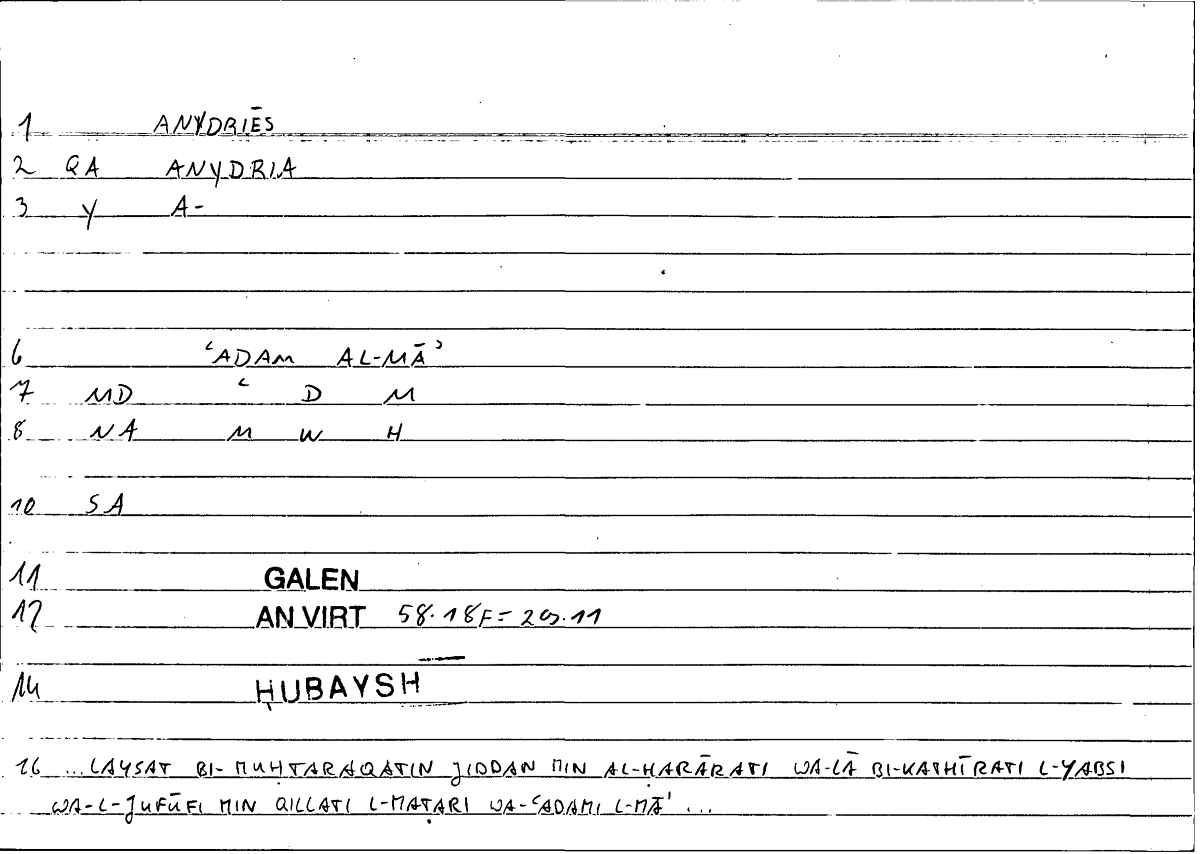 1 ANYDRIĒS
2 QA ANYDRIA
3 Y A-
6 ʿADAM AL-MĀʾ
7 MD ʿ D M
8 NA M W H
10 SA
11 GALEN
12 AN VIRT 58.18F = 29.11
14 ḤUBAYSH
16 ...LAYSAT BI-MUḤTARAQATIN JIDDAN MIN AL-ḤARĀRATI WA-LĀ BI-KATHĪRATI L-YABSI
WA-L-JUFŪFI MIN QILLATI L-MAṬARI WA-ʿADAMI L-MĀʾ ...